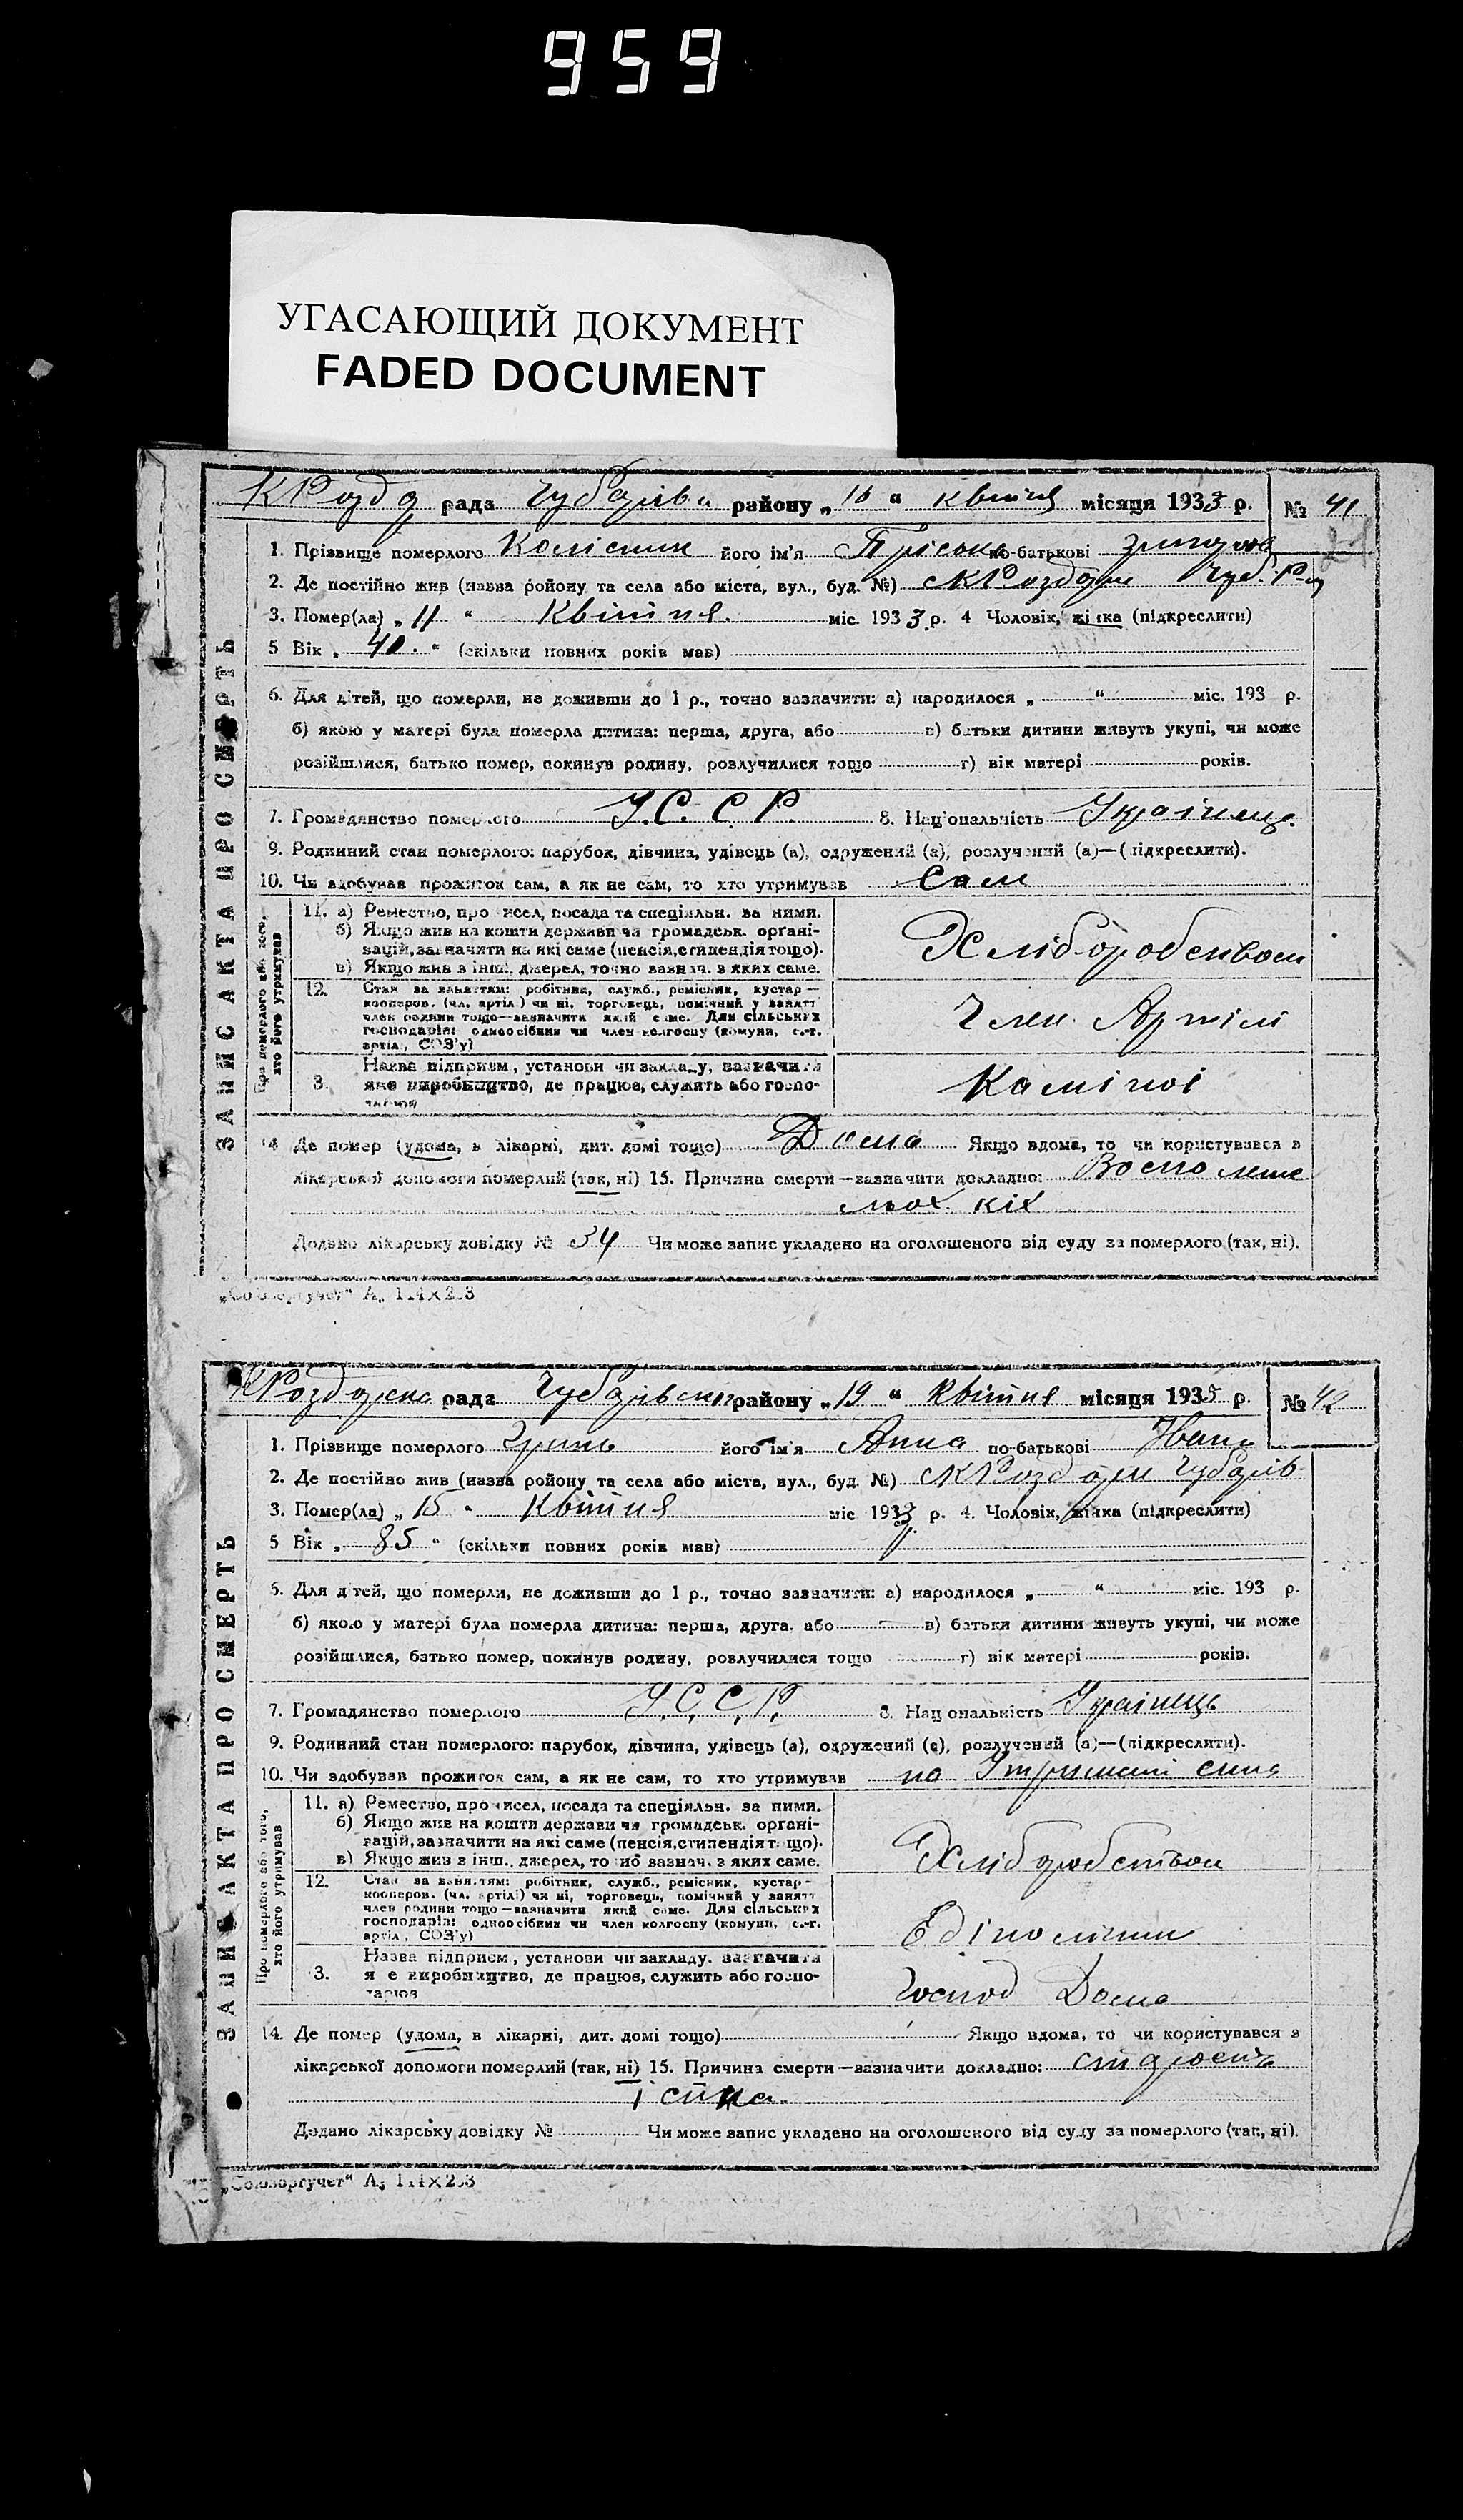 959
УГАСАЮЩИЙ ДОКУМЕНТ
FADED DOCUMENT
рада району „16“ квітня місяця 1933 р. № 41
1. Прізвище померлого Колісник його ім'я Пріська по-батькові
2. Де постійно жив (назва району та села або міста, вул., буд. №)
3. Помер(ла) „11“ Квітня. міс. 1933 р. 4 Чоловік, жінка (підкреслити)
5 Вік „40.“ (скільки повних років мав)
6. Для дітей, що померли, не доживши до 1 р., точно зазначити: а) народилося „ “ міс. 193 р.
б) якою у матері була померла дитина: перша, друга, або в) батьки дитини живуть укупі, чи може
розійшлися, батько помер, покинув родину, розлучилися тощо г) вік матері років.
7. Громадянство померлого У.С.С.Р. 8. Національність Українец.
9. Родинний стан померлого: парубок, дівчина, удівець (а), одружений (а), розлучений (а)—(підкреслити).
10. Чи здобував прожиток сам, а як не сам, то хто утримував Сам
ЗАПИС АКТА ПРО СМЕРТЬ
Про померлого або того,
хто його утримував
11. а) Ремество, промисел, посада та спеціяльн. за ними.
б) Якщо жив на кошти держави чи громадськ. органі-
зацій, зазначити на які саме (пенсія, стипендія тощо).
в) Якщо жив з інш. джерел, точно зазнач. з яких саме.
Хліборобством
12. Стан за заняттям: робітник, служб., ремісник, кустар—
кооперов. (чл. артілі) чи ні, торговець, помічний у занятті
член родини тощо—зазначити який саме. Для сільських
господарів: одноосібник чи член колгоспу (комуни, с.-г.
артілі, СОЗ'у)
Член Артілі
3. Назва підприєм, установи чи закладу, зазначити
яке виробництво, де працює, служить або госпо-
14 Де помер (удома, в лікарні, дит. домі тощо) Дома Якщо вдома, то чи користувався в
лікарської допомоги померлий (так, ні) 15. Причина смерти—зазначити докладно:
Додано лікарську довідку № 34 Чи може запис укладено на оголошеного від суду за померлого (так, ні).
рада району „19“ Квітня місяця 193 р. № 42
1. Прізвище померлого його ім'я Анна по-батькові Іван
2. Де постійно жив (назва району та села або міста, вул., буд. №)
3. Помер(ла) „15“ Квітня міс 1933 р. 4. Чоловік, жінка (підкреслити)
5 Вік „85“ (скільки повних років мав)
6. Для дітей, що померли, не доживши до 1 р., точно зазначити: а) народилося „ “ міс. 193 р.
б) якою у матері була померла дитина: перша, друга, або в) батьки дитини живуть укупі, чи може
розійшлися, батько помер, покинув родину, розлучилися тощо г) вік матері років.
7. Громадянство померлого У.С.С.Р. 8. Національність Українець
9. Родинний стан померлого: парубок, дівчина, удівець (а), одружений (а), розлучений (а)—(підкреслити).
10. Чи здобував прожиток сам, а як не сам, то хто утримував на сина
ЗАПИС АКТА ПРО СМЕРТЬ
Про померлого або того,
хто його утримував
11. а) Ремество, промисел, посада та спеціяльн. за ними.
б) Якщо жив на кошти держави чи громадськ. органі-
зацій, зазначити на які саме (пенсія, стипендія тощо).
в) Якщо жив з інш., джерел, точно зазнач. з яких саме.
Хліборобством
12. Стан за заняттям: робітник, служб., ремісник, кустар-
кооперов. (чл. артілі) чи ні, торговець, помічний у занятті
член родини тощо—зазначити який саме. Для сільських
господарів: одноосібник чи член колгоспу (комуни, с.-г.
артіл, СОЗ'у)
3. Назва підприєм, установи чи закладу, зазначити
яке виробництво, де працює, служить або госпо-
Господ Дома
14. Де помер (удома, в лікарні, дит. домі тощо) Якщо вдома, то чи користувався в
лікарської допомоги померлий (так, ні) 15. Причина смерти—зазначити докладно: старость
Додано лікарську довідку № Чи може запис укладено на оголошеного від суду за померлого (так, ні).
„Союзоргучет“